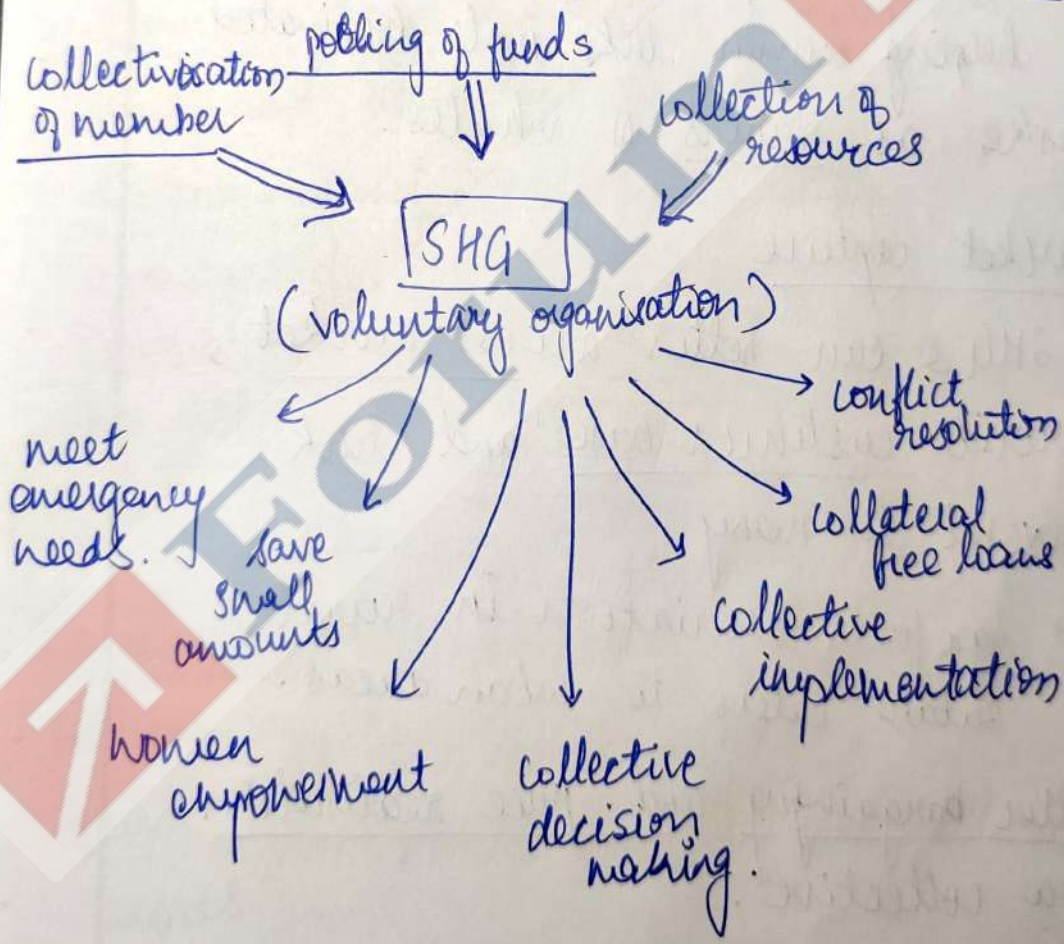 collectivisation
of member
pooling of funds
collection of
resources
SHG
(voluntary organisation)
meet
emergency
needs.
save
small
amounts
women
empowerment
collective
decision
making.
collective
implementation
collateral
free loans
conflict
resolution
Forum